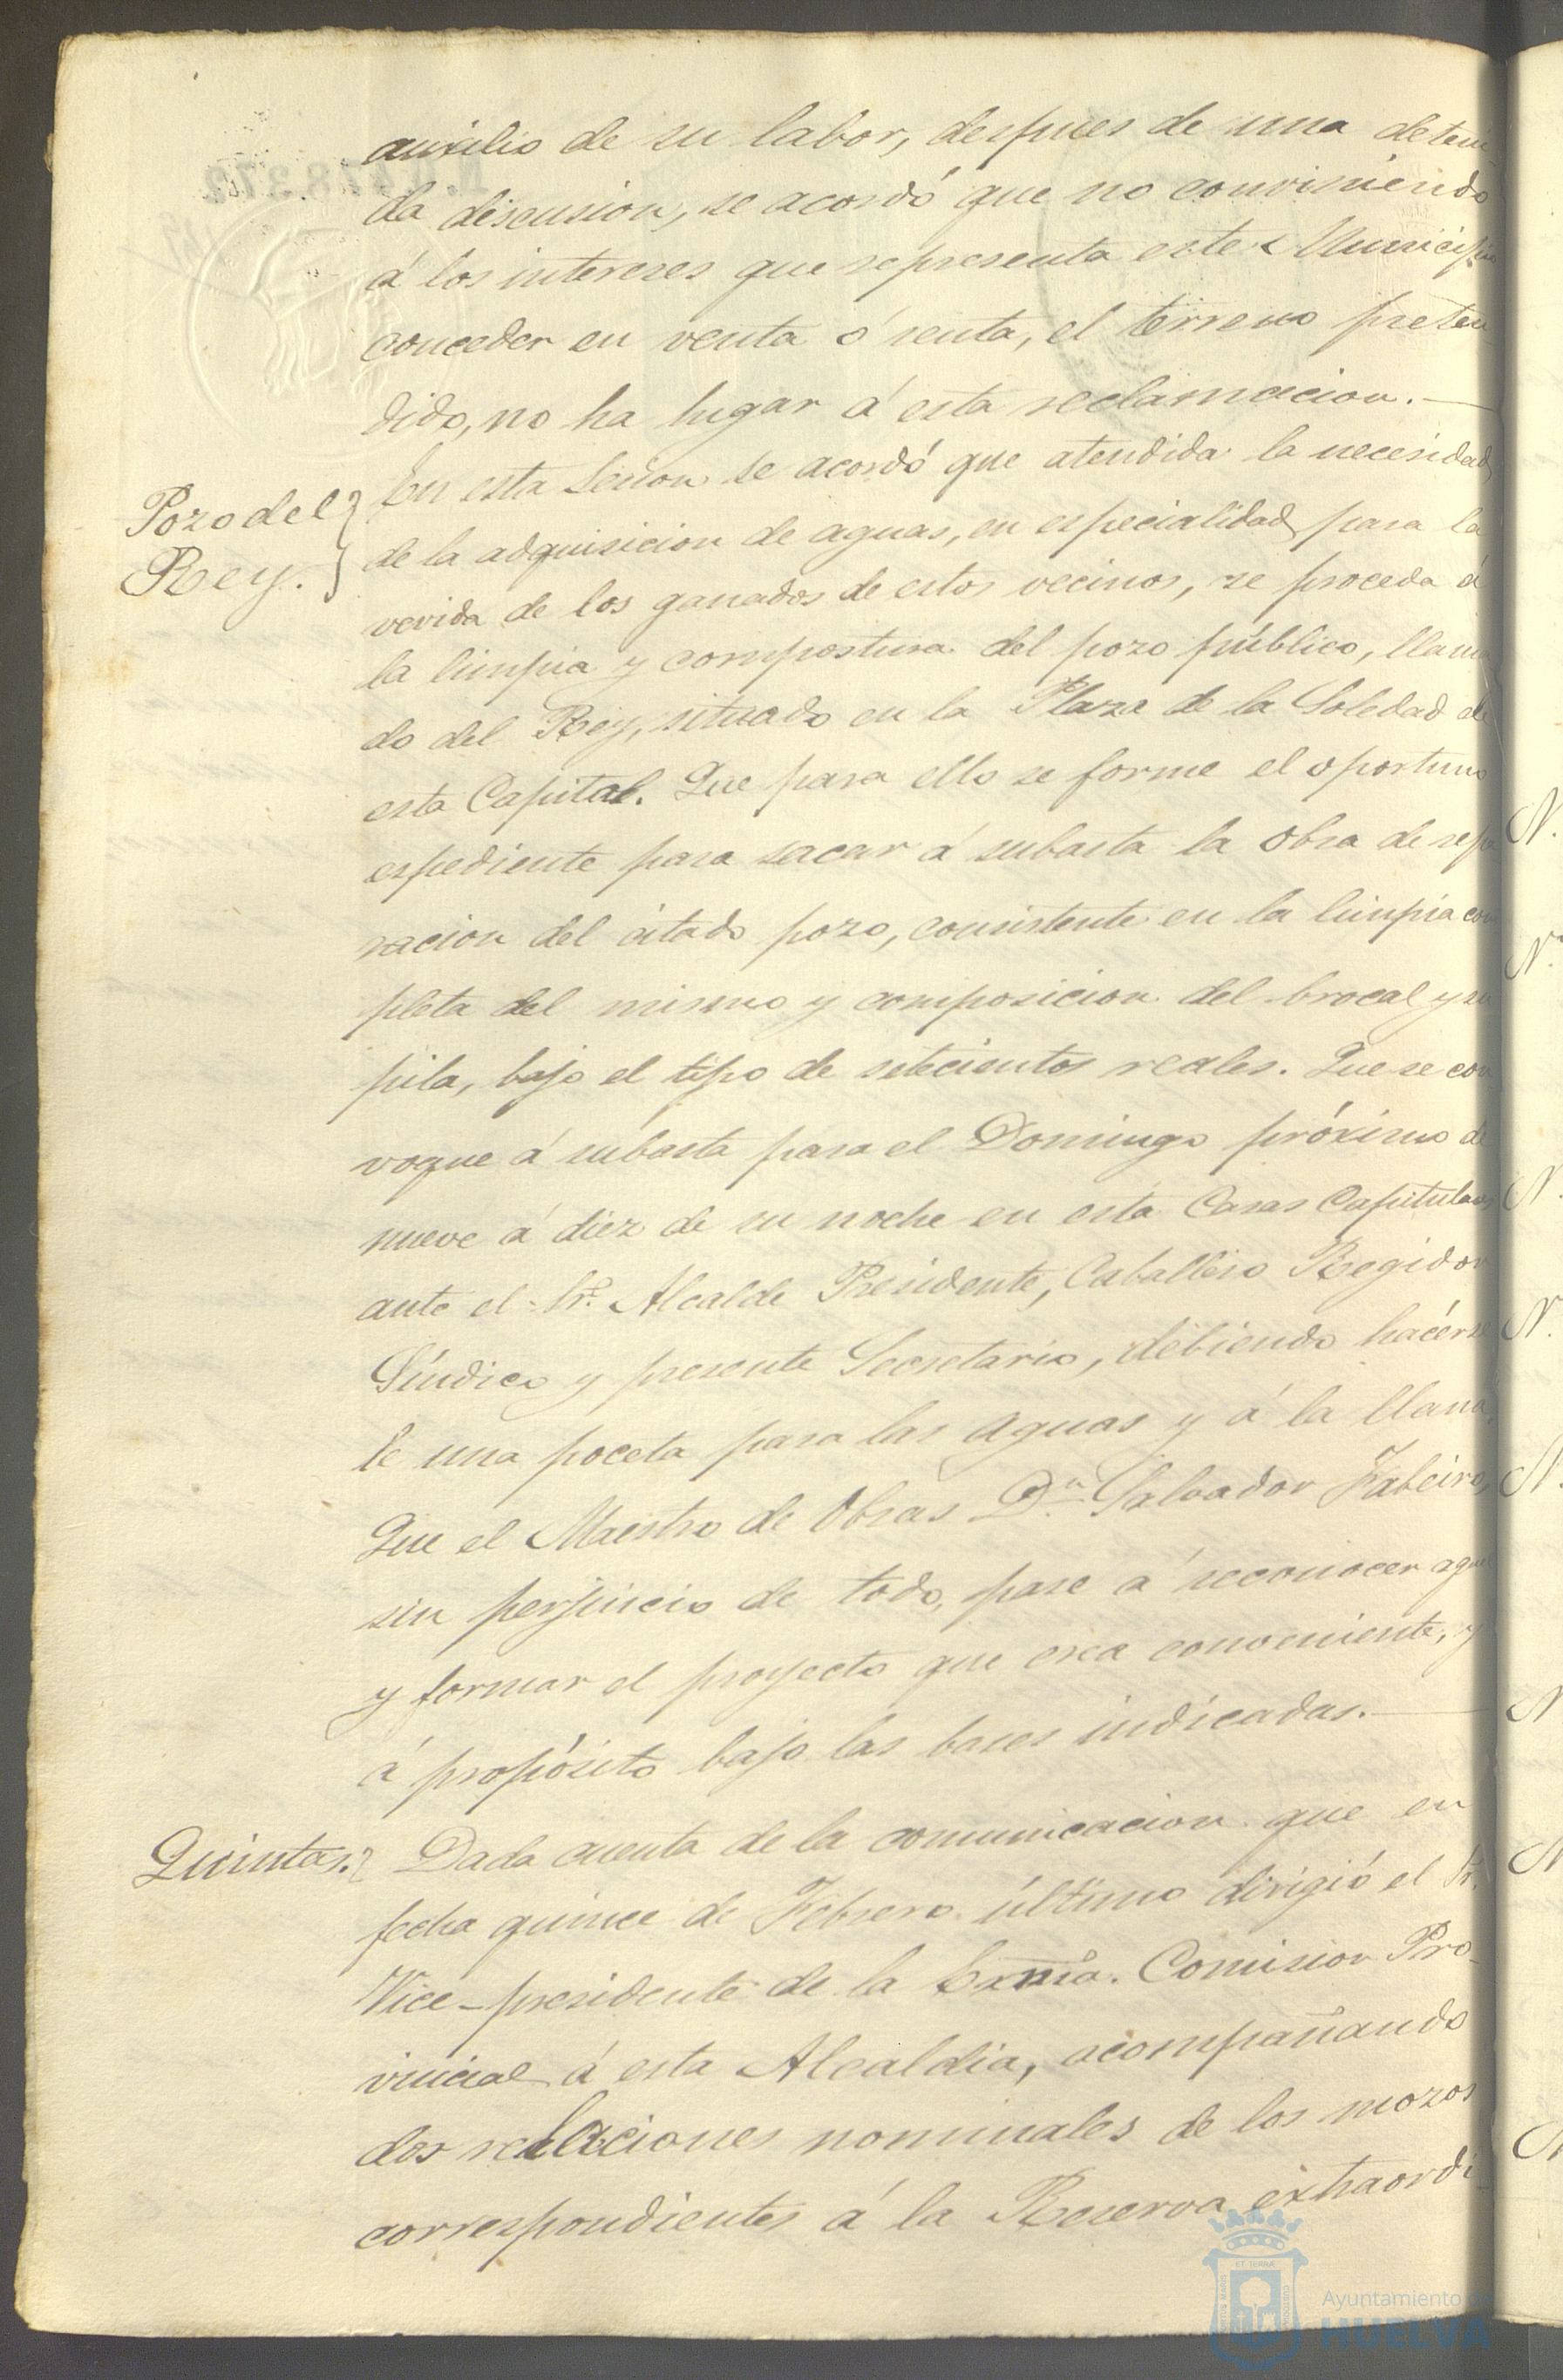 auxilio de su labor, despues de una deteni-
da discusion, se acordó que no conviniendo
á los intereses que representa este Municipio
conceder en venta ó renta, el terreno preten-
dido, no ha lugar á esta reclamacion.—
Pozo del
Rey.
En esta sesion se acordó que atendida la necesidad
de la adquisicion de aguas, en especialidad para la
vevida de los ganados de estos vecinos, se proceda á
la limpia y compostura del pozo público, llama
do del Rey, situado en la Plaza de la Soledad de
esta Capital. Que para ello se forme el oportuno
espediente para sacar á subasta la obra de repa
racion del citado pozo, consistente en la limpia com
pleta del mismo y composicion del brocal y su
pila, bajo el tipo de setecientos reales. Que se con
voque á subasta para el Domingo próximo de
nueve á diez de su noche en esta Casas Capitulares
ante el Sr. Alcalde Presidente, Caballero Regidor
Síndico y presente Secretario, debiendo hacérse
le una poceta para las aguas y á la llana.
Que el Maestro de Obras Dn. Salvador Fabeiro,
sin perjuicio de todo, pase á reconocer aquel
y formar el proyecto que crea conveniente, y
á propósito bajo las bases indicadas.—
Quintas.
Dada cuenta de la comunicacion que en
fecha quince de Febrero último dirigió el Sr.
Vice-presidente de la Exma. Comision Pro-
vincial á esta Alcaldia, acompañando
dos relaciones nominales de los mozos
correspondientes á la Reserva extraordi-
Ayuntamiento de
HUELVA